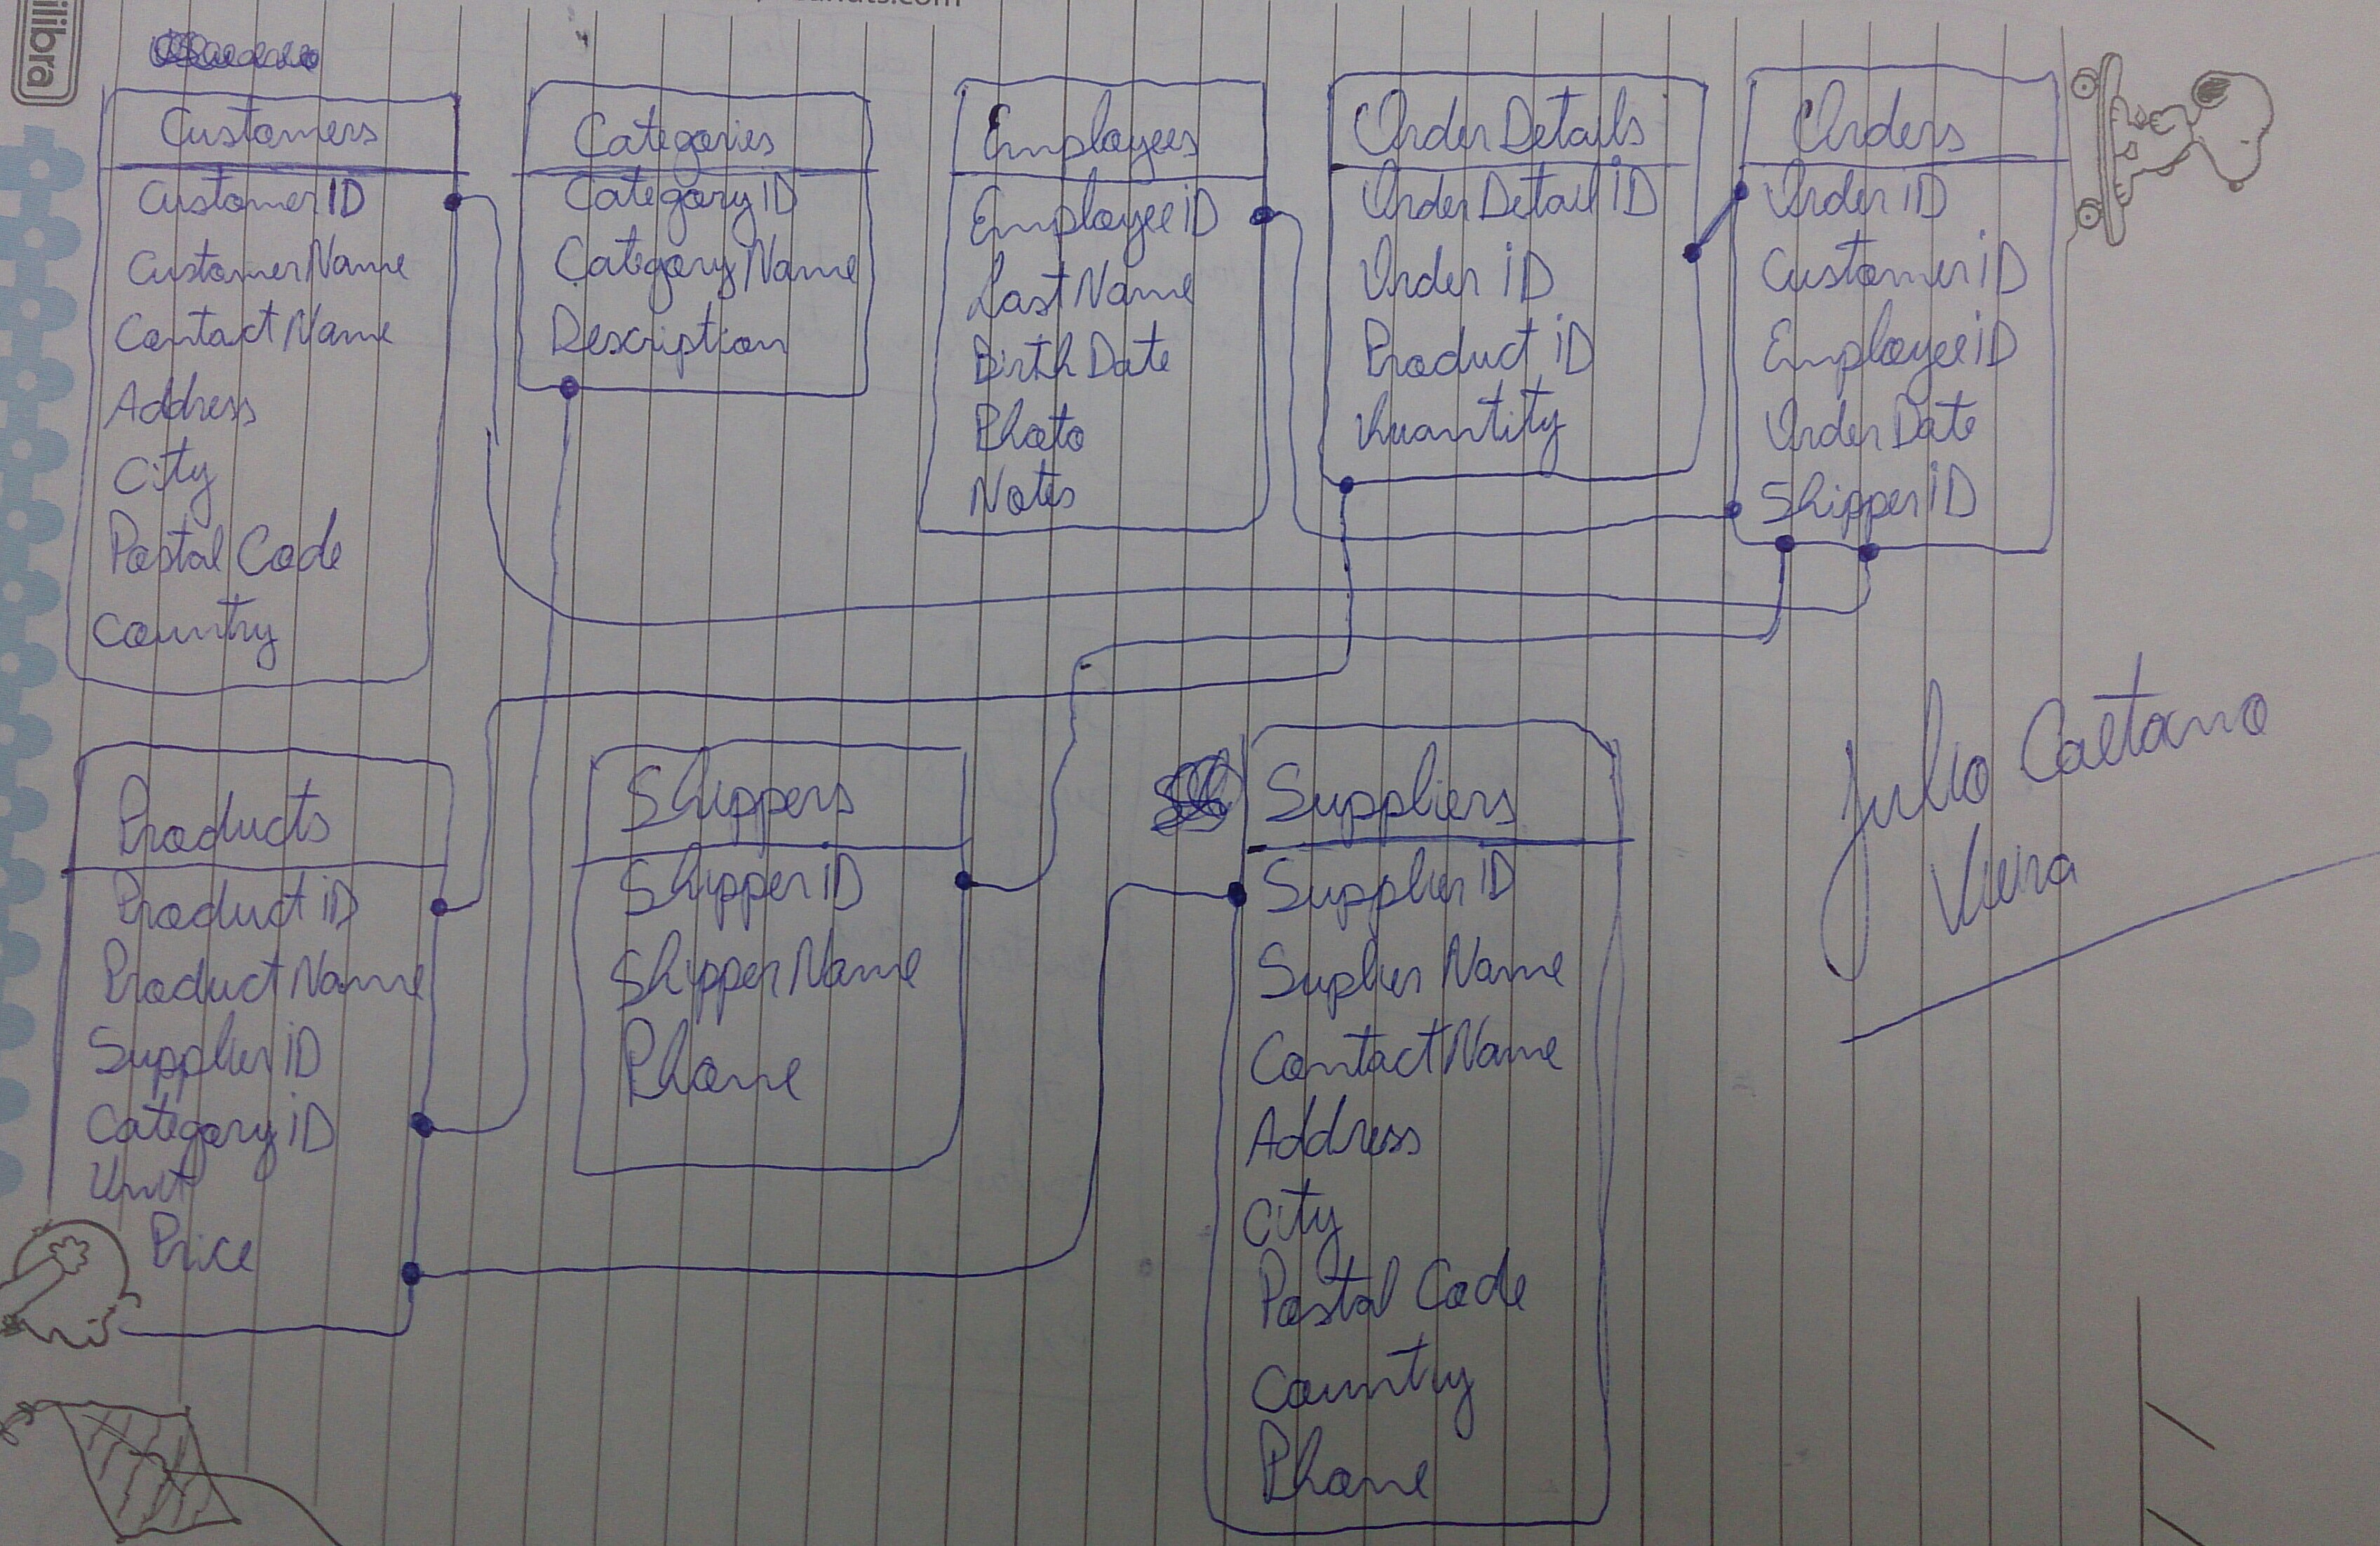 ilibra
Customers
CustomerID
CustomerName
ContactName
Address
City
Postal Code
Country
Categories
CategoryID
CategoryName
Description
Employees
EmployeeID
LastName
BirthDate
Photo
Notes
OrderDetails
OrderDetailID
Order ID
Product ID
Quantity
Orders
Order ID
CustomerID
EmployeeID
Order Date
ShipperID
Products
Product ID
ProductName
SupplierID
CategoryID
Unit
Price
Shippers
ShipperID
ShipperName
Phone
Suppliers
SupplierID
Suplier Name
ContactName
Address
City
Postal Code
Country
Phone
Julio Caetano
Vieira